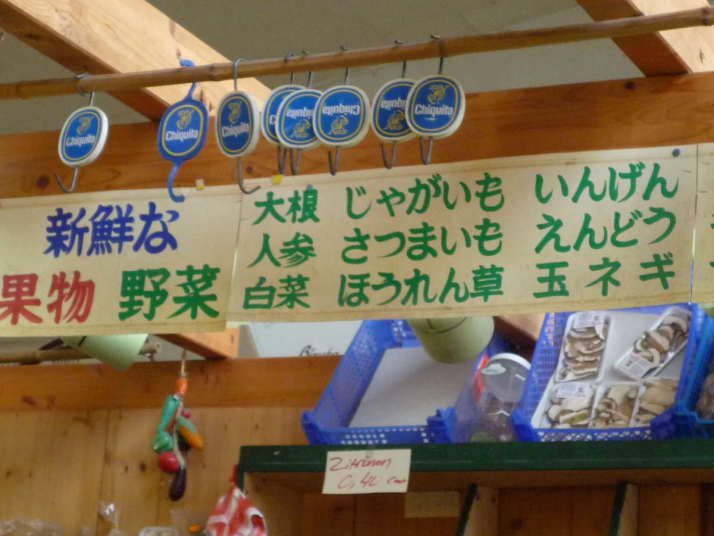 Chiquita
Chiquita
Chiquita
Chiquita
Chiquita
Chiquita
Chiquita
新鮮な
果物 野菜
大根 じゃがいも いんげん
人参 さつまいも えんどう
白菜 ほうれん草 玉ネギ
Zitronen
0,40